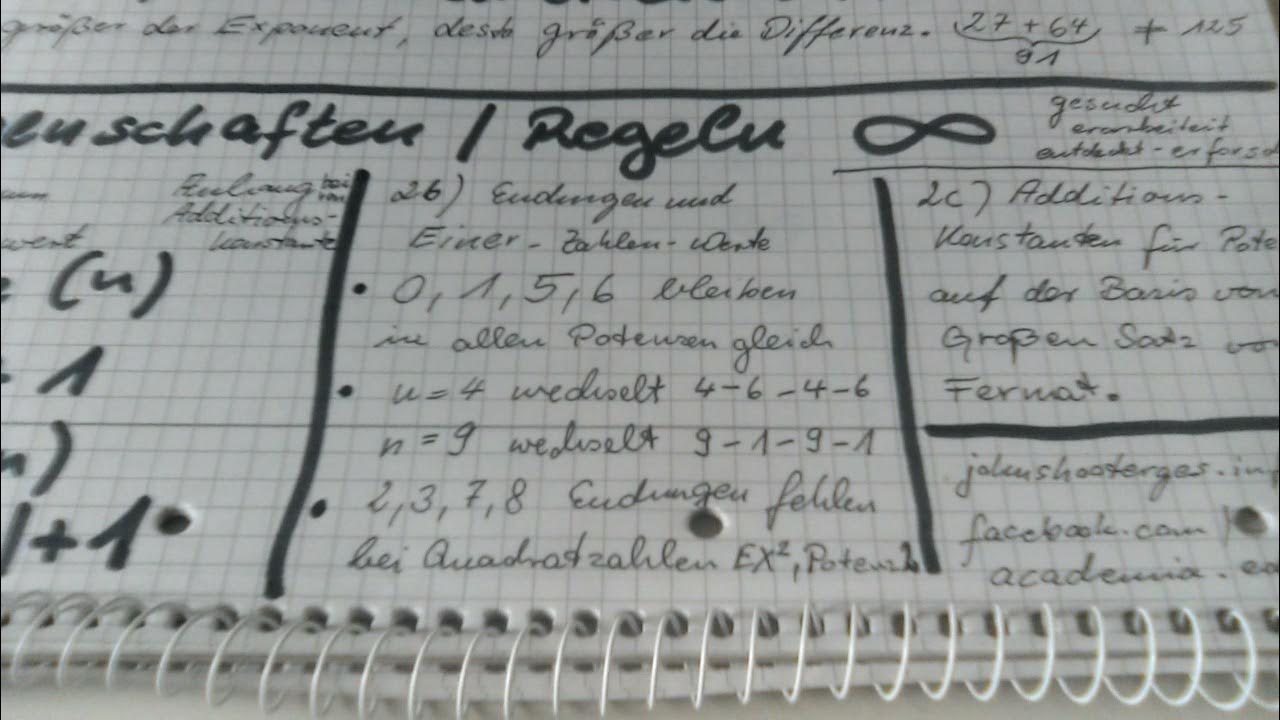 größer der Exponent, desto größer die Differenz. 27 + 64 ≠ 125
91
enschaften / Regeln ∞
gesucht
erarbeitet
entdeckt - erforsch
Additions-
wert Konstante
(n)
1
)
+1
2b) Endungen und
Einer - Zahlen - Werte
• 0, 1, 5, 6 bleiben
in allen Potenzen gleich
• n = 4 wechselt 4-6-4-6
n = 9 wechselt 9-1-9-1
• 2, 3, 7, 8 Endungen fehlen
bei Quadratzahlen EX², Potenz 2
2c) Additions-
Konstanten für Pote
auf der Basis von
Großen Satz von
Fermat.
facebook.com/
academia.ed